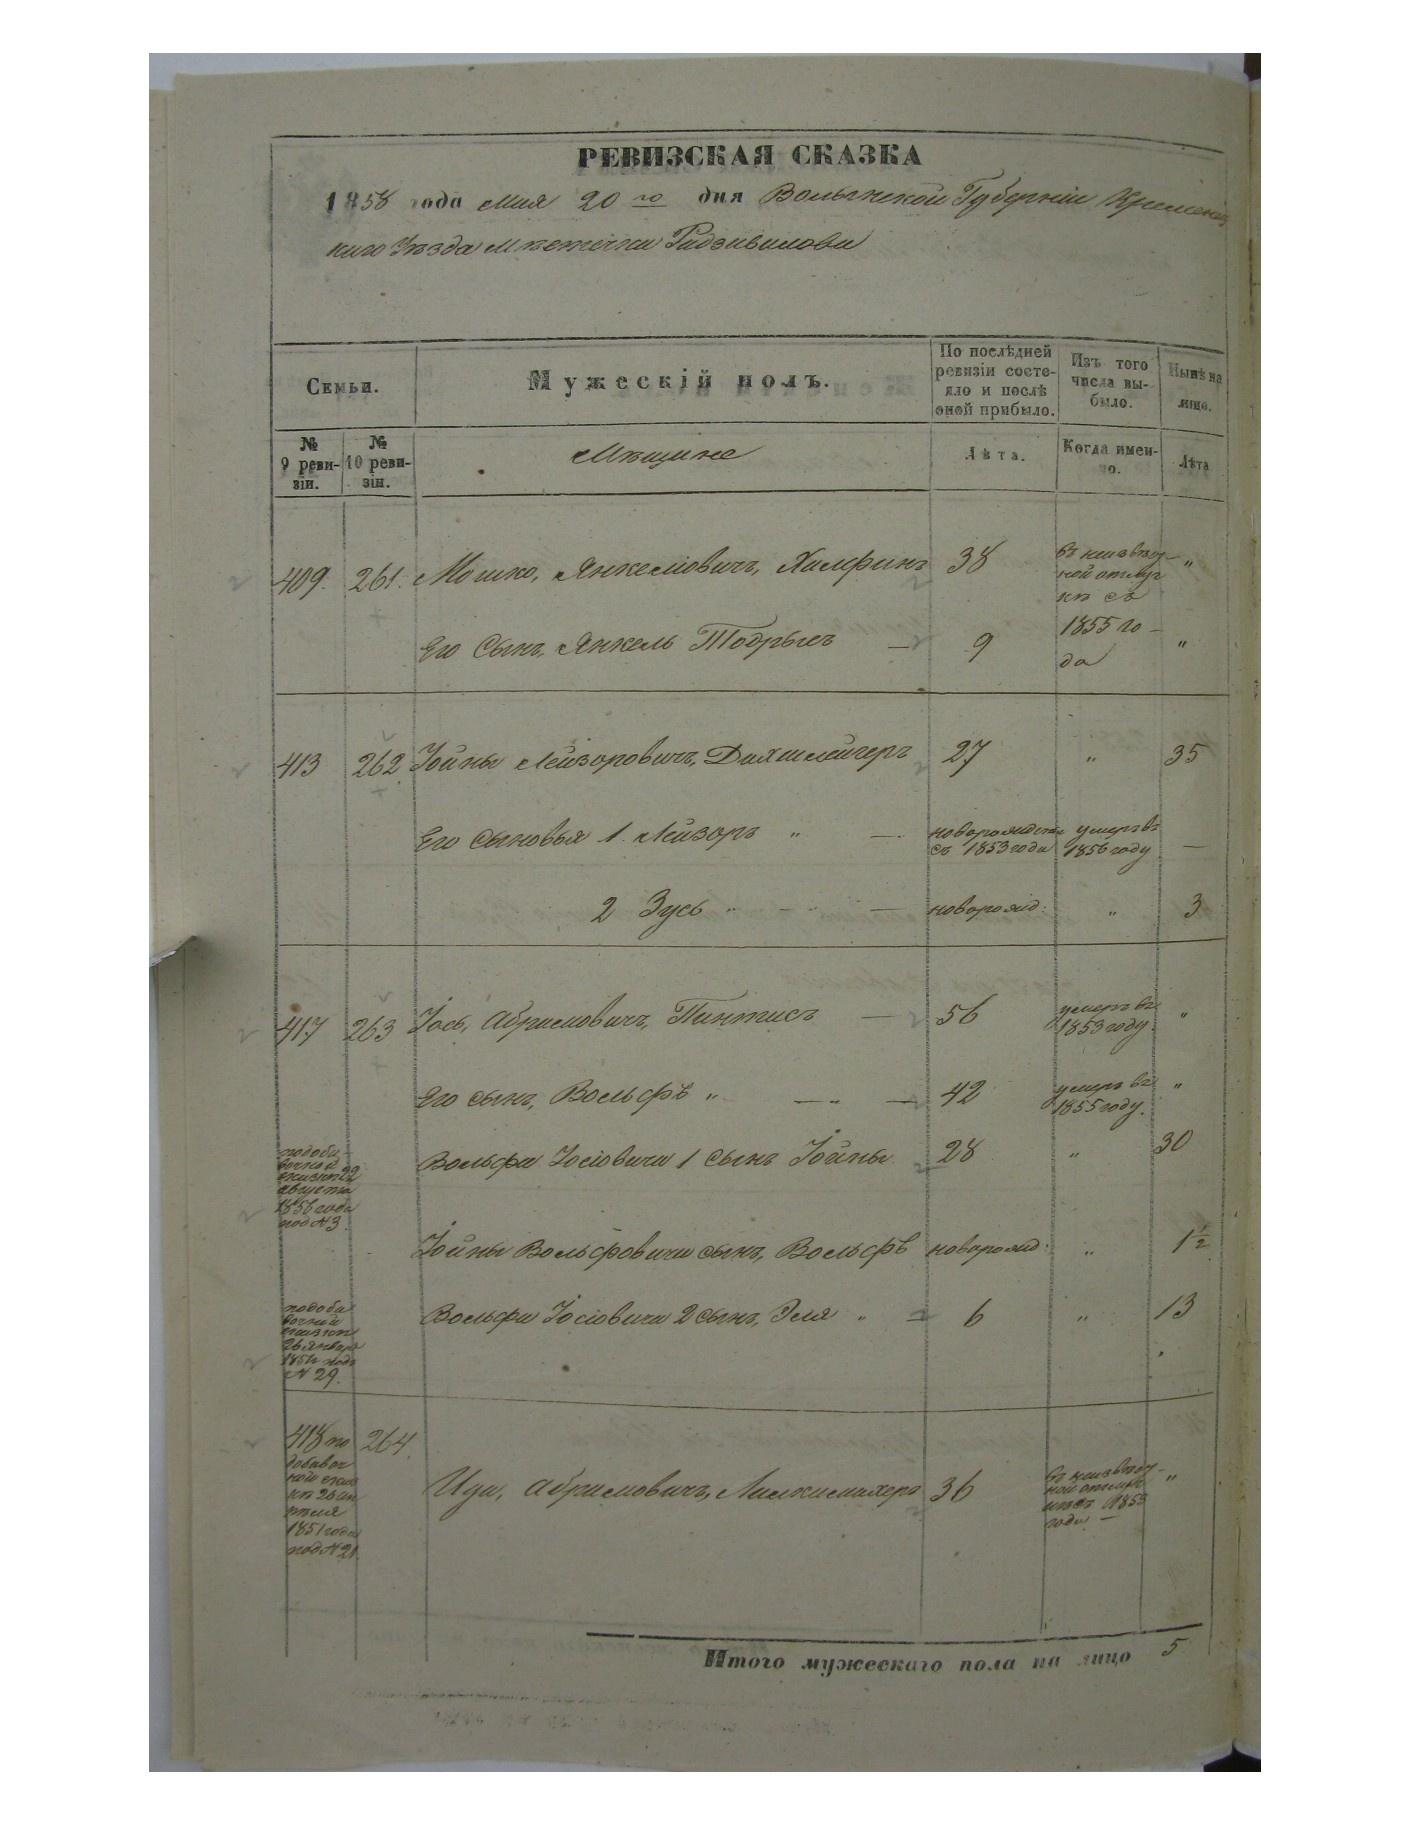 РЕВИЗСКАЯ СКАЗКА
1858 года Мая 20 го дня Волынской Губерніи Кременец
каго Уѣзда мѣстечка Радзивилова
Семьи.
Мужескій полъ.
По послѣдней ревизіи состояло и послѣ оной прибыло.
Изъ того числа выбыло.
Нынѣ на лицо.
№ 9 ревизіи.
№ 10 ревизіи.
Мѣщане
Лѣта.
Когда именно.
Лѣта
409. 261. Мошко, Янкеліовичъ, Халфинъ 38 въ неизвѣст-
ной отлуч
кѣ съ "
Его Сынъ, Янкель Тодрысъ — 9 1855 го-
да "
413 262 Іойны Лейзоровичъ, Дахшлейгеръ 27 " 35
Его Сыновья 1. Лейзоръ " — новорожден умеръ въ
съ 1853 года 1856 году —
2 Зусь " — новорожд: " 3
417 263 Іось, Абрамовичъ, Пинтисъ — 56 умеръ въ
1853 году. "
Его сынъ, Вольфъ " — " — 42 умеръ въ
1855 году. "
по доба
вочной
сказкѣ 22
августа
1856 года
под № 3
Вольфа Іосіовича 1 сынъ Іойны 28 " 30
Іойны Вольфовича сынъ, Вольфъ новорожд: " 1½
по доба
вочной
сказкѣ
26 января
185 подъ
№ 29.
Вольфа Іосіовича 2 сынъ, Эля " — 6 " 13
418 по 264.
добавоч
ной сказ
кѣ 26 ап
рѣля
1851 года
под № 21.
Абрамовичъ, 36 въ неизвѣст-
ной отлуч
кѣ съ 1853
года — "
Итого мужескаго пола на лицо 5